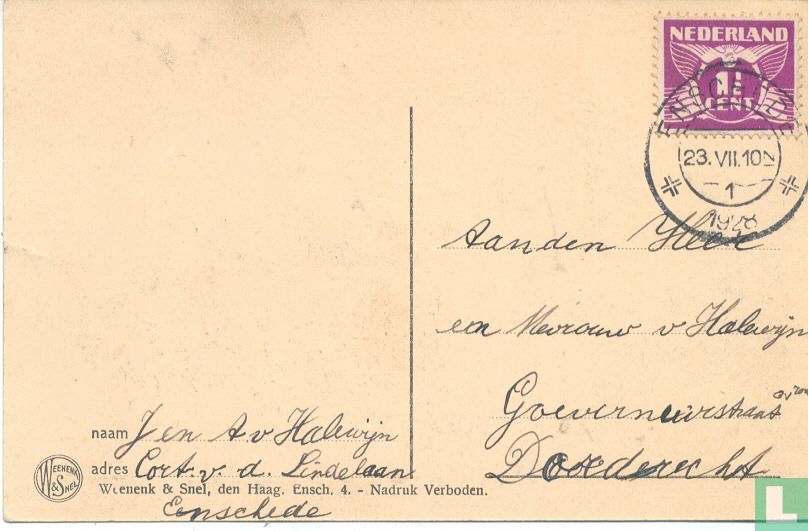 NEDERLAND
1½
CENT
ENSCHEDE
23.VII.10 N
1
1928
Aan den Heer
en Mevrouw v Halewijn
Goeverneurstraat
Dordrecht
naam J en A v Halewijn
adres Cort. v. d. Lindelaan
WEENENK
& SNEL
Weenenk & Snel, den Haag. Ensch. 4. - Nadruk Verboden.
Enschede
LastDodo